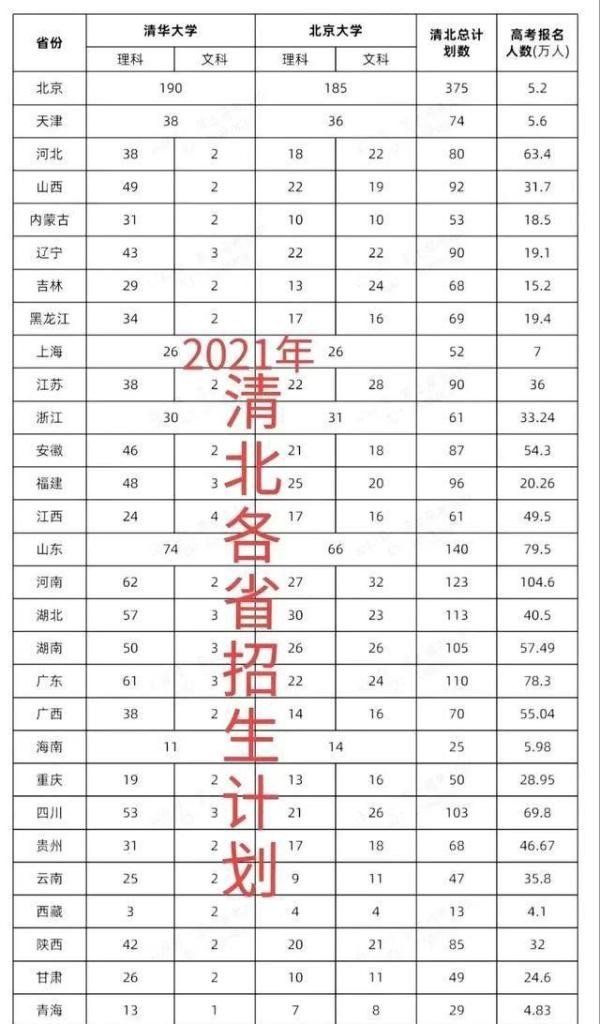 省份 清华大学 北京大学 清北总计划数 高考报名人数(万人)
理科 文科 理科 文科
北京 190 185 375 5.2
天津 38 36 74 5.6
河北 38 2 18 22 80 63.4
山西 49 2 22 19 92 31.7
内蒙古 31 2 10 10 53 18.5
辽宁 43 3 22 22 90 19.1
吉林 29 2 13 24 68 15.2
黑龙江 34 2 17 16 69 19.4
上海 26 26 52 7
江苏 38 2 22 28 90 36
浙江 30 31 61 33.24
安徽 46 2 21 18 87 54.3
福建 48 3 25 20 96 20.26
江西 24 4 17 16 61 49.5
山东 74 66 140 79.5
河南 62 2 27 32 123 104.6
湖北 57 3 30 23 113 40.5
湖南 50 3 26 26 105 57.49
广东 61 3 22 24 110 78.3
广西 38 2 14 16 70 55.04
海南 11 14 25 5.98
重庆 19 2 13 16 50 28.95
四川 53 3 21 26 103 69.8
贵州 31 2 17 18 68 46.67
云南 25 2 9 11 47 35.8
西藏 3 2 4 4 13 4.1
陕西 42 2 20 21 85 32
甘肃 26 2 10 11 49 24.6
青海 13 1 7 8 29 4.83
2021年
清北各省招生计划